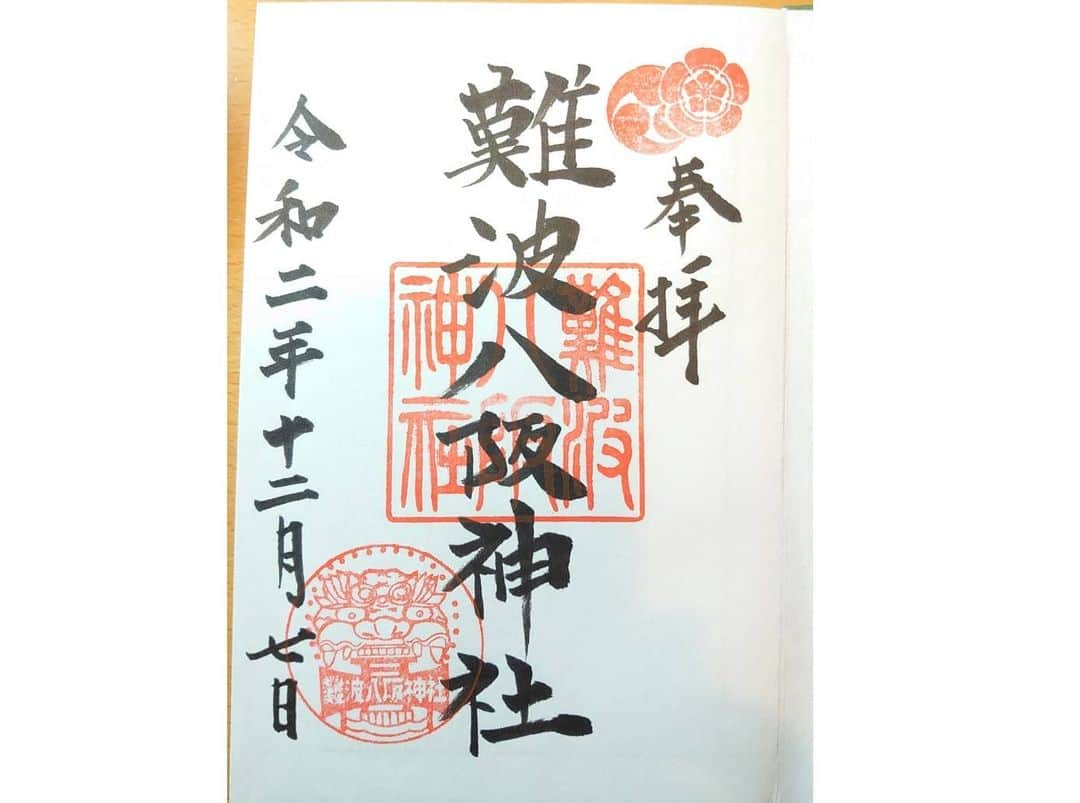 奉拝
難波八阪神社
難波
八阪
神社
令和二年十二月七日
難波八阪神社